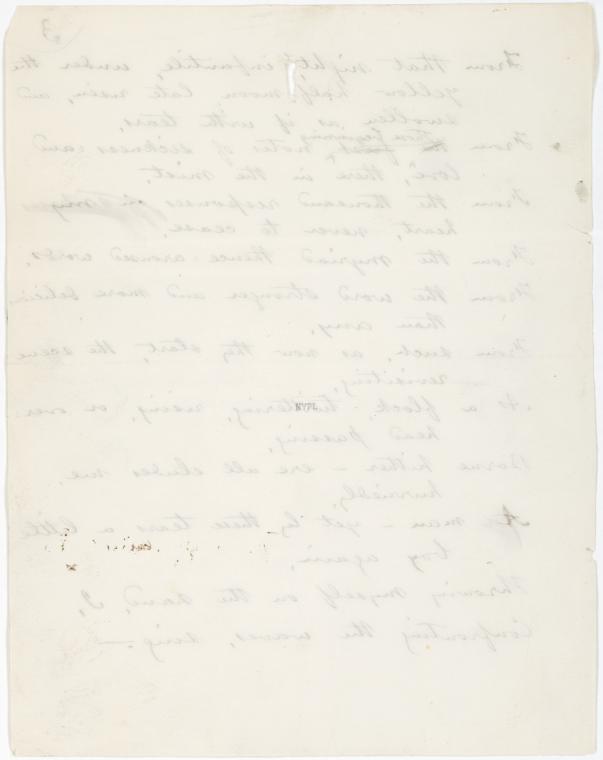 3
From that night, infantile, under the
yellow half-moon late risen, and
swollen as if with tears,
those beginning
From notes of sickness and
love, there in the mist,
From the thousand responses my
heart, never to cease,
From the myriad thence-aroused words,
From the word stronger and more delicio
than any,
From such, as now they start, the scene
revisiting,
As a flock, twittering, rising, or over-
head passing,
Borne hither – ere all eludes me,
hurriedly,
A man – yet by these tears a little
boy again,
Throwing myself on the sand, I,
Confronting the waves, sing.—